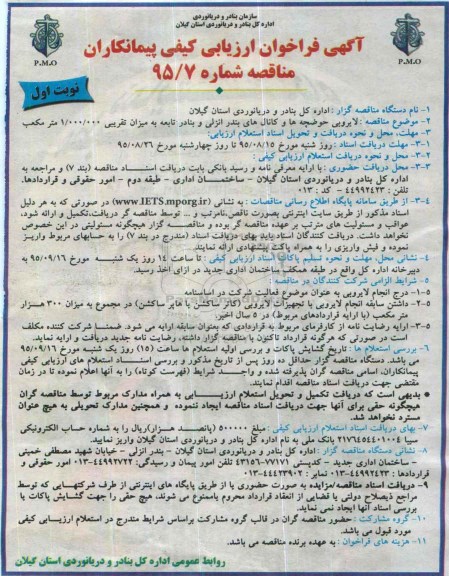 سازمان بنادر و دریانوردی
اداره کل بنادر و دریانوردی استان گیلان
P.M.O
P.M.O
آگهی فراخوان ارزیابی کیفی پیمانکاران
مناقصه شماره ۹۵/۷
نوبت اول
۱- نام دستگاه مناقصه گزار : اداره کل بنادر و دریانوردی استان گیلان
۲- موضوع مناقصه : لایروبی حوضچه ها و کانال های بندر انزلی و بنادر تابعه به میزان تقریبی ۱/۰۰۰/۰۰۰ متر مکعب
۳- مهلت، محل و نحوه دریافت و تحویل اسناد استعلام ارزیابی:
۳-۱- مهلت دریافت اسناد : روز شنبه مورخ ۹۵/۰۸/۱۵ تا روز چهارشنبه مورخ ۹۵/۰۸/۲۶
۳-۲- محل و نحوه دریافت استعلام ارزیابی کیفی :
۳-۳- محل دریافت حضوری : با ارایه معرفی نامه و رسید بانکی بابت دریافت اسناد مناقصه (بند ۷) و مراجعه به
اداره کل بنادر و دریانوردی استان گیلان - ساختمان اداری - طبقه دوم - امور حقوقی و قراردادها.
تلفن : ۴۴۹۹۲۴۲۳ کد : ۰۱۳
۳-۴- از طریق سامانه پایگاه اطلاع رسانی مناقصات : به نشانی (www.IETS.mporg.ir) در صورتی که به هر دلیل
اسناد مذکور از طریق سایت اینترنتی بصورت ناقص،نامرتب و ... توسط مناقصه گر دریافت،تکمیل و ارائه شود،
عواقب و مسئولیت های مترتب بر عهده مناقصه گر بوده و مناقصه گزار هیچگونه مسئولیتی در این خصوص
نخواهد داشت. دریافت کنندگان اسناد باید بهای دریافت اسناد (مندرج در بند ۷) را به حسابهای مربوط واریز
نموده و فیش واریزی را به همراه پاکت پیشنهادی ارائه نمایند.
۴- نشانی محل، مهلت و نحوه تسلیم پاکات اسناد ارزیابی کیفی : تا ساعت ۱۴ روز یک شنبه مورخ ۹۵/۰۹/۱۶ به
دبیرخانه اداره کل واقع در طبقه همکف ساختمان اداری جدید در ازای اخذ رسید.
۵- شرایط الزامی شرکت کنندگان در مناقصه :
۵-۱- درج انجام لایروبی به عنوان موضوع فعالیت شرکت در اساسنامه
۵-۲- داشتن سابقه انجام لایروبی با تجهیزات لایروبی (کاتر ساکشن یا هاپر ساکشن) در مجموع به میزان ۳۰۰ هزار
متر مکعب (با ارایه قراردادهای مربوط) در ۵ سال اخیر.
۵-۳- ارایه رضایت نامه از کارفرمای مربوط به قراردادی که بعنوان سابقه ارایه می شود. ضمنا شرکت کننده مکلف
است در صورتی که هرگونه قرارداد تاکنون با مناقصه گزار داشته، رضایت نامه جدید دریافت و ارایه نماید.
۶- بررسی استعلام ها : تاریخ گشایش پاکات و بررسی اولیه استعلام ها ساعت (۱۵) روز یک شنبه مورخ ۹۵/۰۹/۱۶
می باشد. دستگاه مناقصه گزار حداقل ده روز پس از تاریخ مذکور و بررسی اسناد استعلام های ارزیابی کیفی
پیمانکاران، اسامی مناقصه گران پذیرفته شده و واجد شرایط (فهرست کوتاه) را به آنها اعلام نموده تا در زمان
مقتضی جهت دریافت اسناد مناقصه اقدام نمایند.
● بدیهی است که دریافت تکمیل و تحویل استعلام ارزیابی به همراه مدارک مربوط توسط مناقصه گران
هیچگونه حقی برای آنها جهت دریافت اسناد مناقصه ایجاد ننموده و همچنین مدارک تحویلی به هیچ عنوان
مسترد نخواهد شد.
۷- بهای دریافت اسناد استعلام ارزیابی کیفی : مبلغ ۵۰۰۰۰۰ (پانصد هزار)ریال را به شماره حساب الکترونیکی
سیبا ۲۱۷۴۶۵۴۴۰۱۰۰۴ بانک ملی به نام اداره کل بنادر و دریانوردی استان گیلان واریز نمایید.
۸- نشانی دستگاه مناقصه گزار : اداره کل بنادر و دریانوردی استان گیلان - بندر انزلی - خیابان شهید مصطفی خمینی
- ساختمان اداری جدید - کدپستی ۷۷۱۷۱-۴۳۱۵۶ تلفن امور پیمان و رسیدگی: ۴۴۹۹۲۷۲۲-۰۱۳ امور حقوقی و
قراردادها : ۴۴۹۹۲۴۲۳-۰۱۳ نمابر : ۴۴۴۲۳۹۰۲-۰۱۳
۹- دریافت اسناد مناقصه/مزایده به صورت حضوری یا از طریق پایگاه های اینترنتی از طرف شرکتهایی که توسط
مراجع ذیصلاح دولتی یا قضایی از انعقاد قرارداد محروم یاممنوع می شوند، هیچ حقی را جهت گشایش پاکات یا
بررسی اسناد آنها ایجاد نمی نماید.
۱۰- گروه مشارکت : حضور مناقصه گران در قالب گروه مشارکت براساس شرایط مندرج در استعلام ارزیابی کیفی
مورد قبول می باشد.
۱۱- هزینه های فراخوان : به عهده برنده مناقصه می باشد.
روابط عمومی اداره کل بنادر و دریانوردی استان گیلان